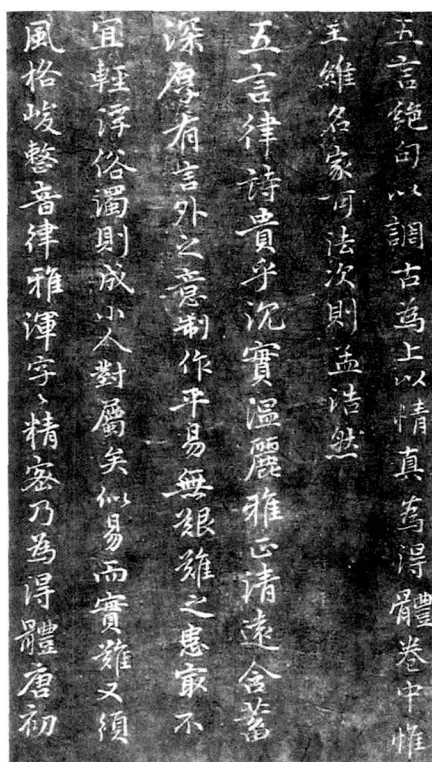 五言絶句以調古為上以情真為得體卷中惟
王維名家可法次則孟浩然
五言律詩貴乎沉實溫麗雅正清遠含蓄
深厚有言外之意制作平易無艱難之患㝡不
宜輕浮俗濁則成小人對屬矣似易而實難又須
風格峻整音律雅渾字〻精密乃為得體唐初